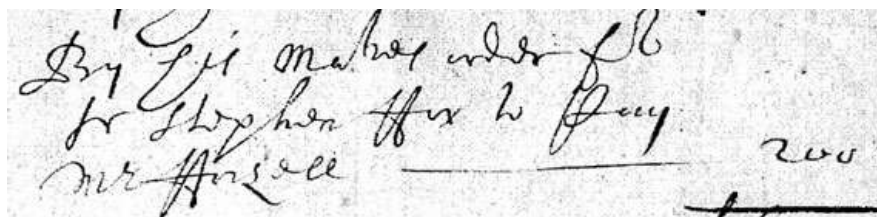 By his Ma^ties order
Sr Stephen ffox to Pay
Mr 200